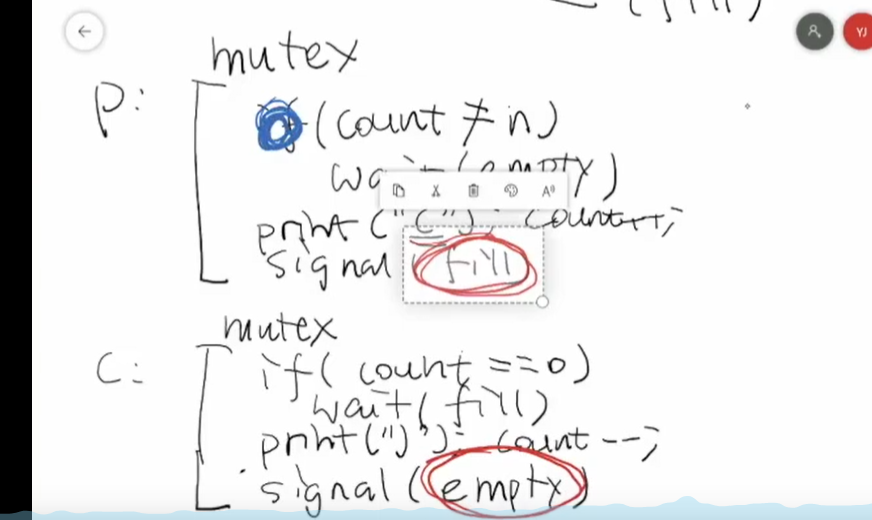 YJ
mutex
P:
(count ≠ n)
wait (empty)
A
print ("("); count++;
signal (fill
mutex
C:
if( count ==0)
wait( fill)
print(")"): count --;
signal (empty)